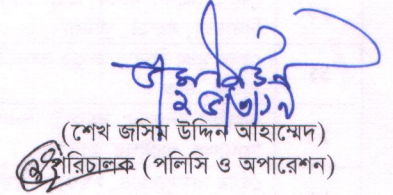 ২৫/৩/১৭
(শেখ জসিম উদ্দিন আহাম্মেদ)
পরিচালক (পলিসি ও অপারেশন)